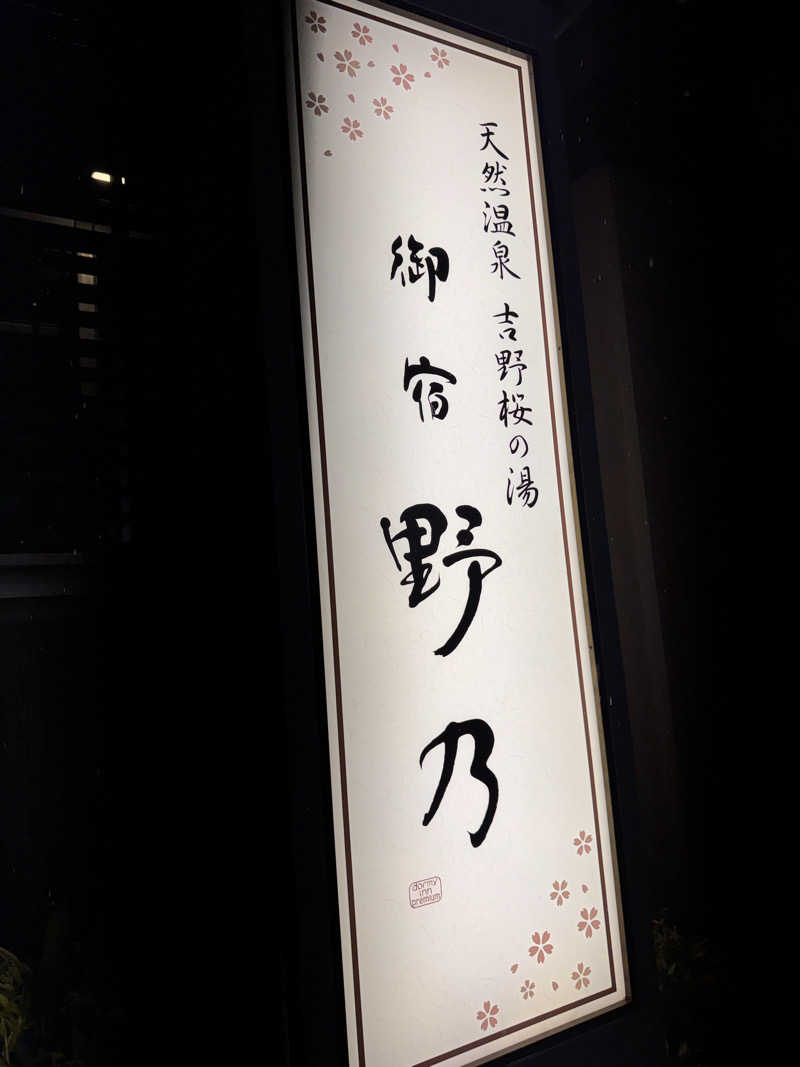 天然温泉 吉野桜の湯
御宿 野乃
dormy
inn
premium